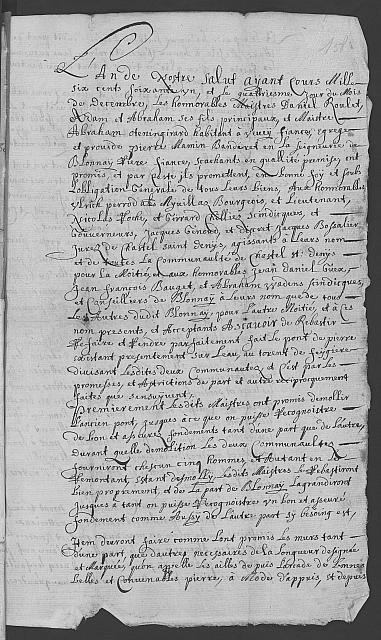 L'An de Nostre Salut ayant Cours Mille
six cents soixante un, et le quattriesme Jour du Mois
de decembre, les honnorables Maistres Daniel Roulet,
Adam et Abraham ses fils principaux, et Maistre
Abraham habitant à Vevey fiance, egrege
et provide pierre Mamin Banderet en la Seigneurie de
Blonnay fiance, scachants en quallité premise, ont
promis, et par Ceste ils promettent, en bonne foy et soubs
l'obligation Generale de tous leurs biens, Aux honnorables
Bourgeois, et Lieutenant,
Nicolas et Girard Chillier scindicques, et
Gouverneurs, Jacques Genoud, et discret Jacques Bossalier
Jurez de Chastel saint Denys, agissants à leurs nom
et de toutes la Communaulte de Chastel st: Denys
pour la Moitié, et aux honnorables Jean Daniel
Jean François Bauget, et Abraham scindicques,
et Conseilliers de Blonnay à leurs nom que de tous
les Autres dudit Blonnay, pour l'autre Moitié, et à Ces
nom presents, et Acceptants Ascavoir de Rebastir
Refaire et Rendre parfaitement fait le pont de pierre
existant presentement sur l'eau, au torrent de
divisant lesdites deux Communautez et C'est par les
promesses, et Astrictions de part et autre reciproquement
faites que sensuyvent.
Premierement lesdits Maistres ont promis demollir
l'ancien pont, jusques à ce que on puisse Recognoistre
de bon et asseuré fondements tant d'une part que de l'autre,
durant quelle demolition les deux Communaultes
fourniront chascun cinq hommes, et Autant en le
Remontant, Estant desmolly, lesdits Maistres le Rebastiront
bien proprement, et de la part de Blonnay l'agrandiront
jusques à tant on puisse Recognoistre un bon et asseuré
fondement comme Aussy de l'autre part sy besoing est,
Item devront faire comme l'ont promis les murs tant
d'une part, que d'autres necessaires de la Longueur designée
et Marquée, qu'on appelle les ailes du puis l'arcade de bonnes
belles et Convenables pierre, à Mode d'appuis, et depuis